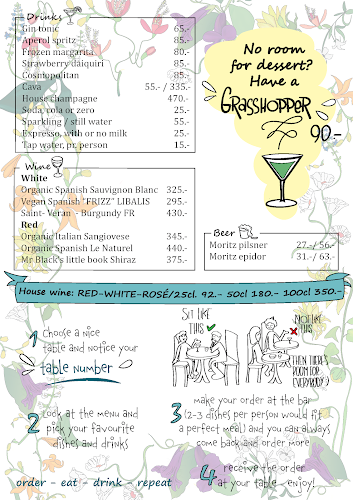 Drinks
Gin tonic 65.-
Aperol spritz 85.-
Frozen margarita 80.-
Strawberry daiquiri 85.-
Cosmopolitan 85.-
Cava 55.- / 335.-
House champagne 470.-
Soda, cola or zero 25.-
Sparkling / still water 55.-
Espresso, with or no milk 25.-
Tap water, pr. person 15.-
No room
for dessert?
Have a
GRASSHOPPER
90.-
Wine
White
Organic Spanish Sauvignon Blanc 325.-
Vegan Spanish "FRIZZ" LIBALIS 295.-
Saint-Veran - Burgundy FR 430.-
Red
Organic Italian Sangiovese 345.-
Organic Spanish Le Naturel 440.-
Mr Black's little book Shiraz 375.-
Beer
Moritz pilsner 27.-/ 56.-
Moritz epidor 31.-/ 63.-
House wine: RED-WHITE-ROSÉ/25cl. 92.- 50cl 180.- 100cl 350.-
1 Choose a nice
table and notice your
table number
SIT LIKE
THIS
NOT LIKE
THIS
THEN THERE'S
ROOM FOR
EVERYBODY?
2 Look at the menu and
pick your favourite
dishes and drinks
3 make your order at the bar
(2-3 dishes per person would fit
a perfect meal) and you can always
come back and order more
4 receive the order
at your table - enjoy!
order - eat - drink - repeat